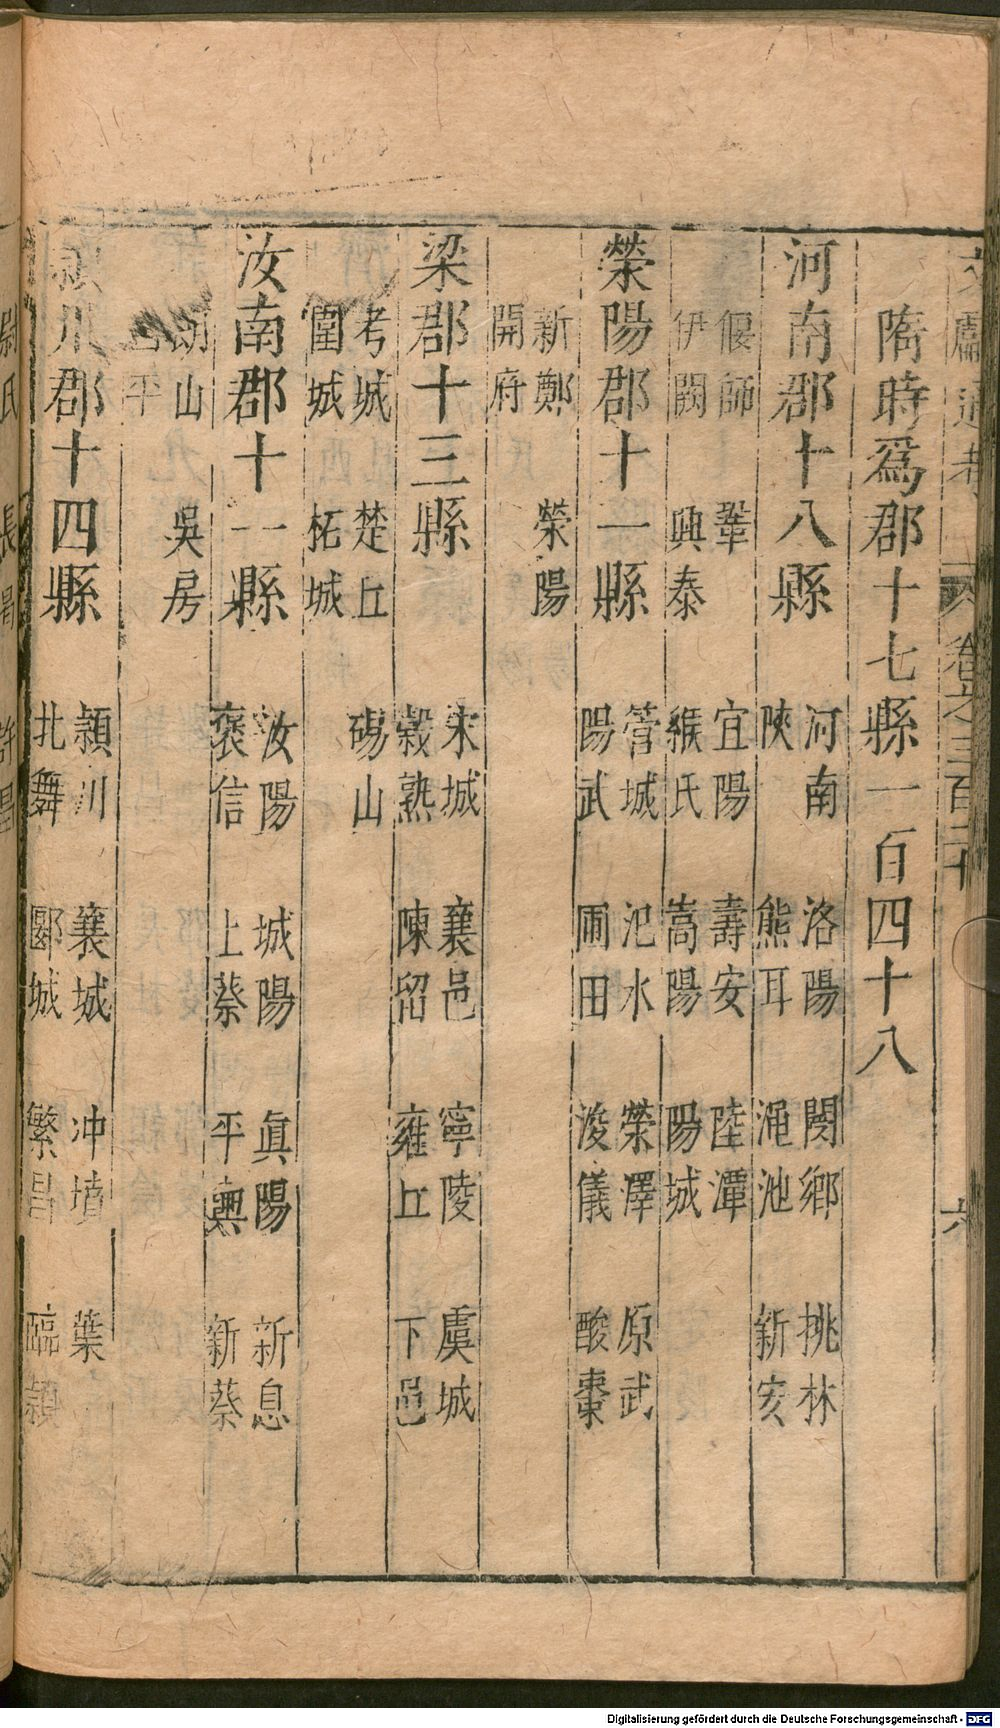 文獻通考 卷之三百二十 六
隋時爲郡十七縣一百四十八
河南郡十八縣 河南 洛陽 閿鄉 桃林
陝 熊耳 澠池 新安
偃師 鞏 宜陽 壽安 陸渾
伊闕 興泰 緱氏 嵩陽 陽城
滎陽郡十一縣 管城 汜水 滎澤 原武
陽武 圃田 浚儀 酸棗
新鄭 滎陽
開府
梁郡十三縣 宋城 襄邑 寧陵 虞城
穀熟 陳留 雍丘 下邑
考城 楚丘 碭山
圉城 柘城
汝南郡十一縣 汝陽 城陽 眞陽 新息
褒信 上蔡 平輿 新蔡
朗山 吳房
西平
潁川郡十四縣 潁川 襄城 冲墳 葉
北舞 郾城 繁昌 臨潁
尉氏 長葛 許昌
Digitalisierung gefördert durch die Deutsche Forschungsgemeinschaft - DFG